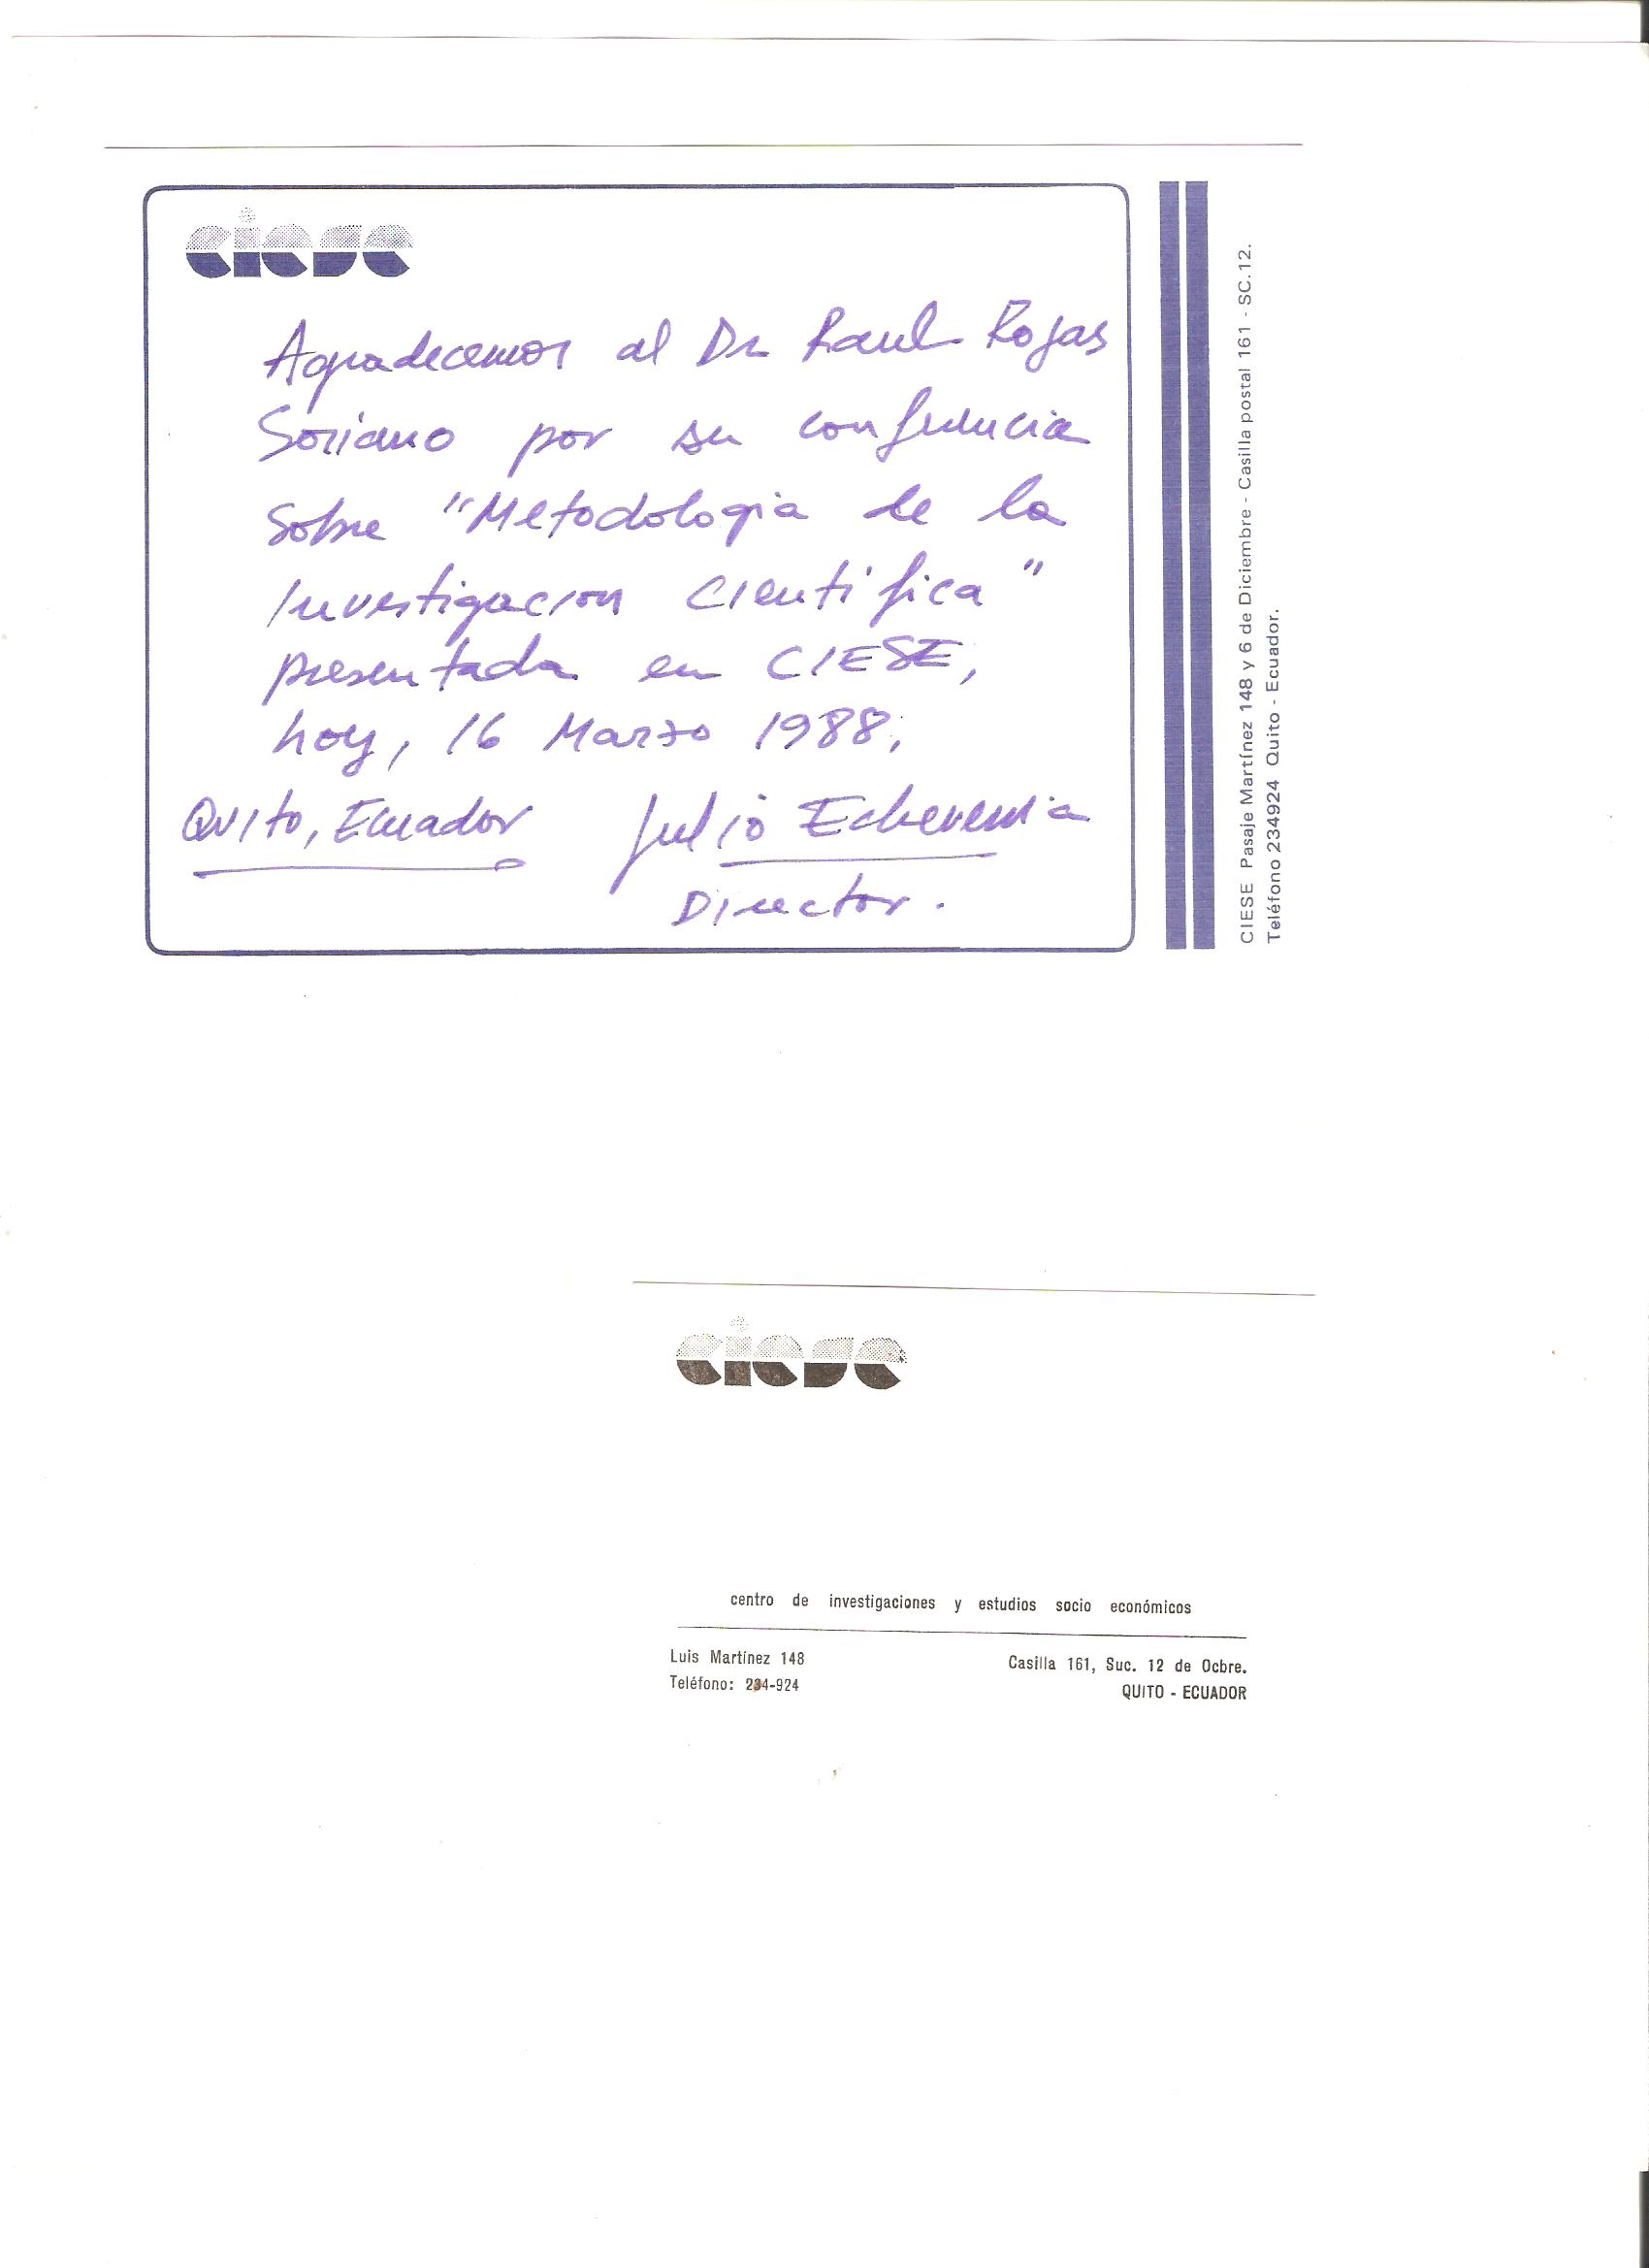 ciese
Agradecemos al Dr Raul Rojas
Soriano por su conferencia
sobre "Metodologia de la
Investigacion Cientifica"
presentada en CIESE,
hoy, 16 Marzo 1988,
Quito, Ecuador Julio Echeverria
Director.
CIESE Pasaje Martínez 148 y 6 de Diciembre - Casilla postal 161 - SC.12.
Teléfono 234924 Quito - Ecuador.
ciese
centro de investigaciones y estudios socio económicos
Luis Martínez 148 Casilla 161, Suc. 12 de Ocbre.
Teléfono: 234-924 QUITO - ECUADOR